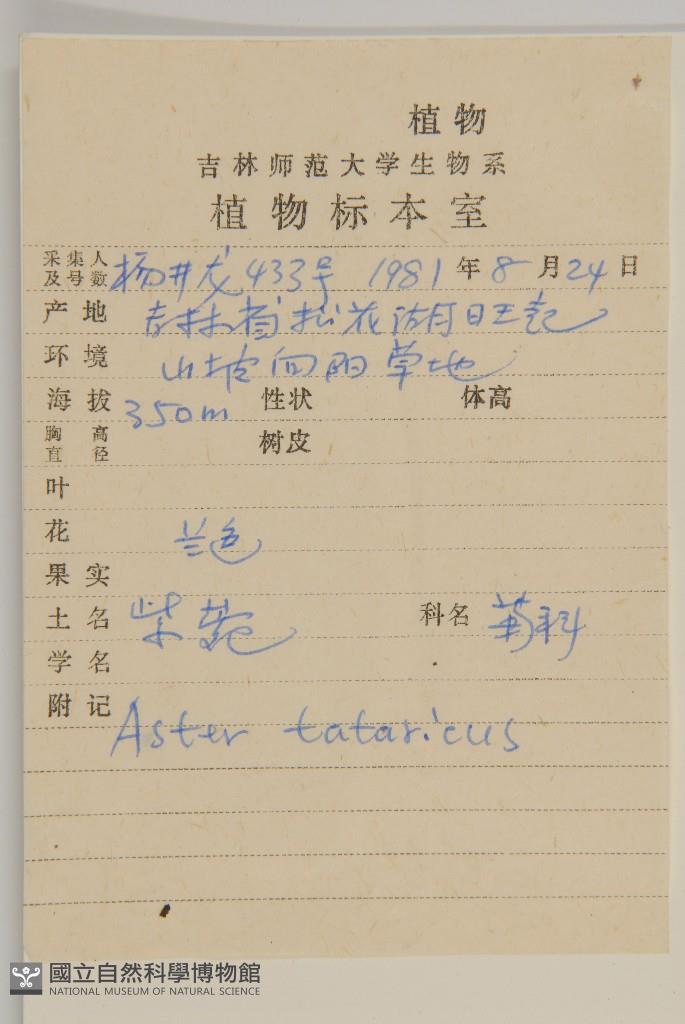 植物
吉林师范大学生物系
植物标本室
采集人及号数 杨井龙 433号 1981年8月24日
产地 吉林省松花湖
环境 山坡向阳草地
海拔 350m 性状 体高
胸高直径 树皮
叶
花 兰色
果实
土名 紫菀 科名 菊科
学名
附记 Aster tataricus
國立自然科學博物館
NATIONAL MUSEUM OF NATURAL SCIENCE